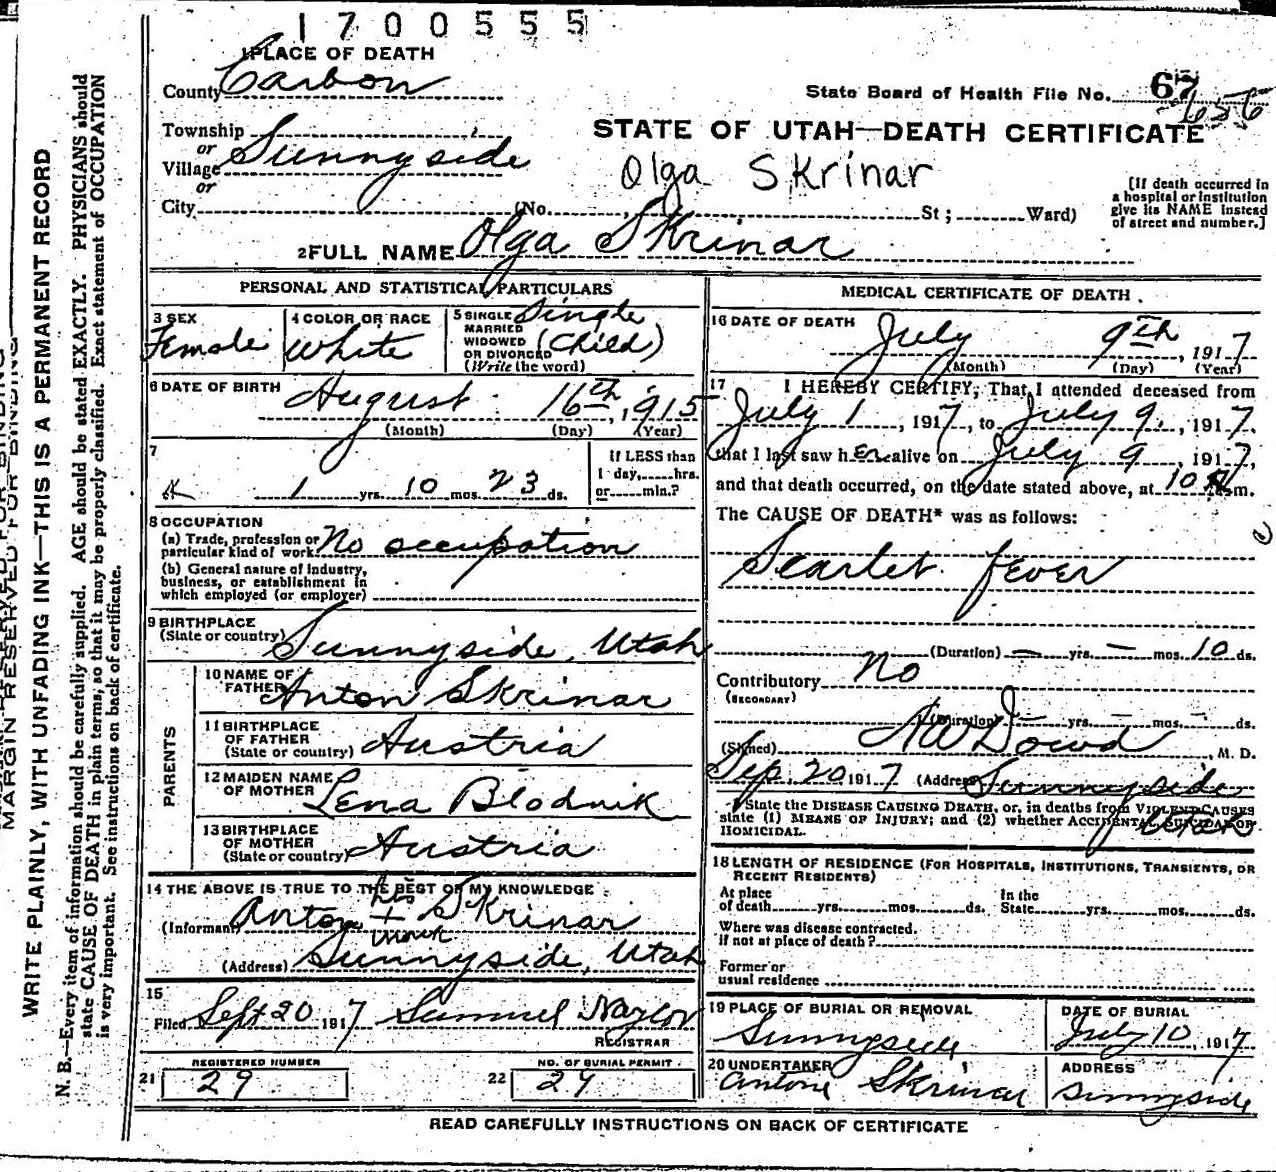 1700555
1 PLACE OF DEATH
County Carbon
State Board of Health File No. 67
656
Township
or
Village Sunnyside
or
City (No. St; Ward)
STATE OF UTAH—DEATH CERTIFICATE
Olga Skrinar
[If death occurred in
a hospital or institution
give its NAME instead
of street and number.]
2 FULL NAME Olga Skrinar
PERSONAL AND STATISTICAL PARTICULARS
3 SEX
Female
4 COLOR OR RACE
White
5 SINGLE
MARRIED
WIDOWED
OR DIVORCED
(Write the word)
Single
(Child)
6 DATE OF BIRTH
August 16th, 1915
(Month) (Day) (Year)
7
1 yrs. 10 mos. 23 ds.
If LESS than
1 day,......hrs.
or......min.?
8 OCCUPATION
(a) Trade, profession or
particular kind of work No occupation
(b) General nature of industry,
business, or establishment in
which employed (or employer)
9 BIRTHPLACE
(State or country) Sunnyside, Utah
PARENTS
10 NAME OF
FATHER Anton Skrinar
11 BIRTHPLACE
OF FATHER
(State or country) Austria
12 MAIDEN NAME
OF MOTHER Lena Blodnik
13 BIRTHPLACE
OF MOTHER
(State or country) Austria
14 THE ABOVE IS TRUE TO THE BEST OF MY KNOWLEDGE
his
(Informant) Anton + Skrinar
mark
(Address) Sunnyside, Utah
15
Filed Sept 20 1917 Samuel Naylor
REGISTRAR
REGISTERED NUMBER
21 29
NO. OF BURIAL PERMIT
22 29
MEDICAL CERTIFICATE OF DEATH
16 DATE OF DEATH
July 9th, 1917
(Month) (Day) (Year)
17 I HEREBY CERTIFY, That I attended deceased from
July 1, 1917, to July 9, 1917.
that I last saw her alive on July 9, 1917,
and that death occurred, on the date stated above, at 10 m.
The CAUSE OF DEATH* was as follows:
Scarlet fever
(Duration) — yrs. — mos. 10 ds.
Contributory No
(SECONDARY)
(Duration) — yrs. — mos. — ds.
(Signed) A W Dowd, M. D.
Sep. 20 1917 (Address) Sunnyside
Utah
*State the DISEASE CAUSING DEATH, or, in deaths from VIOLENT CAUSES
state (1) MEANS OF INJURY; and (2) whether ACCIDENTAL, SUICIDAL OR
HOMICIDAL.
18 LENGTH OF RESIDENCE (FOR HOSPITALS, INSTITUTIONS, TRANSIENTS, OR
RECENT RESIDENTS)
At place
of death......yrs......mos......ds.
In the
State......yrs......mos......ds.
Where was disease contracted.
if not at place of death?
Former or
usual residence
19 PLACE OF BURIAL OR REMOVAL
Sunnyside
DATE OF BURIAL
July 10, 1917
20 UNDERTAKER
Antone Skrinar
ADDRESS
Sunnyside
READ CAREFULLY INSTRUCTIONS ON BACK OF CERTIFICATE
MARGIN RESERVED FOR BINDING
WRITE PLAINLY, WITH UNFADING INK—THIS IS A PERMANENT RECORD
N. B.—Every item of information should be carefully supplied. AGE should be stated EXACTLY. PHYSICIANS should
state CAUSE OF DEATH in plain terms, so that it may be properly classified. Exact statement of OCCUPATION
is very important. See instructions on back of certificate.